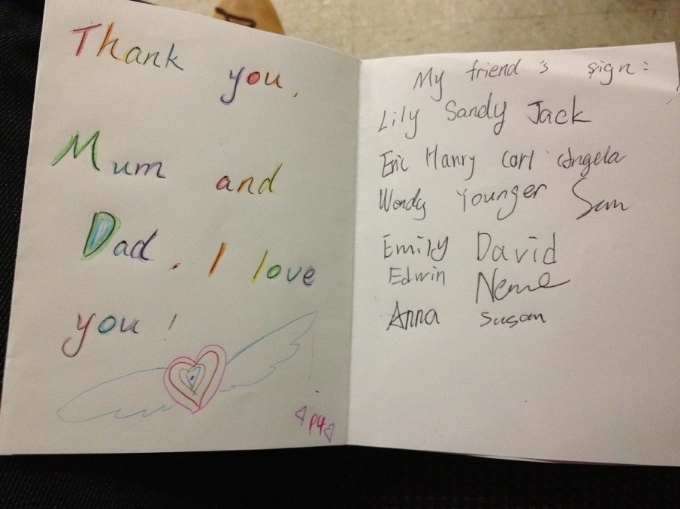 Thank you,
Mum and
Dad. I love
you!
My friend's sign:
Lily Sandy Jack
Eric Harry Carl Angela
Wendy Younger Sam
Emily David
Edwin
Anna Susan